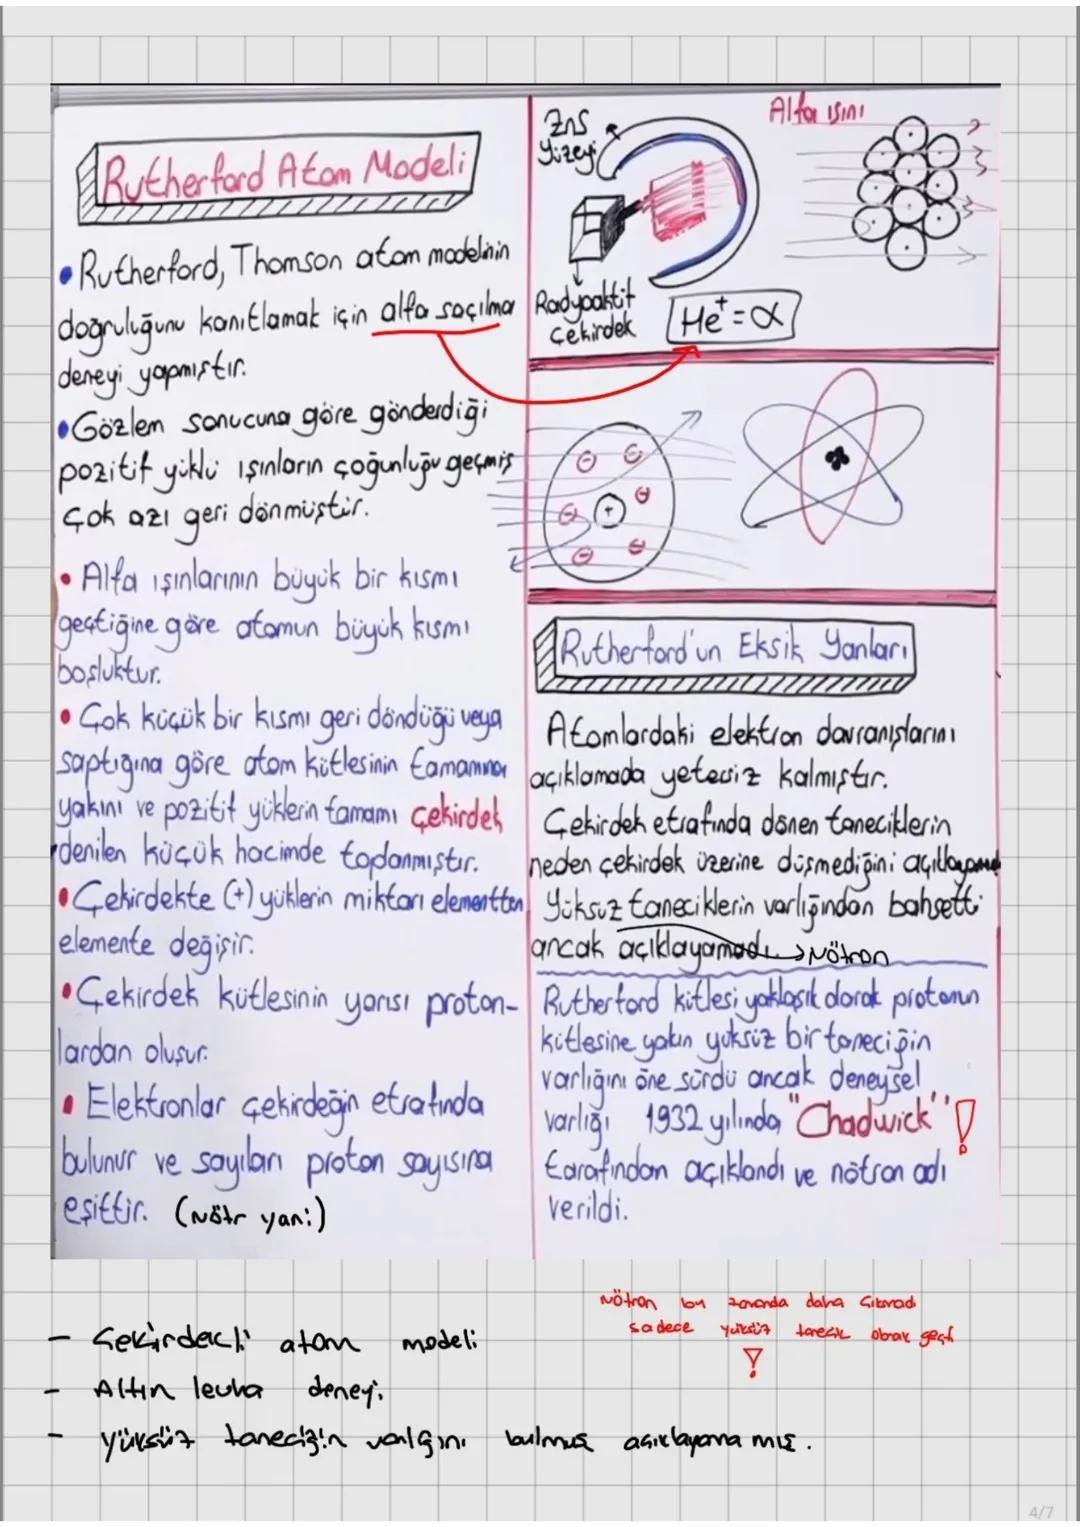 Rutherford Atom Modeli
• Rutherford, Thomson atom modelinin
doğruluğunu kanıtlamak için alfa saçılma
deneyi yapmıştır.
• Gözlem sonucuna göre gönderdiği
pozitif yüklü ışınların çoğunluğu geçmiş
çok azı geri dönmüştür.
• Alfa ışınlarının büyük bir kısmı
geçtiğine göre atomun büyük kısmı
boşluktur.
• Çok küçük bir kısmı geri döndüğü veya
saptığına göre atom kütlesinin tamamına
yakını ve pozitif yüklerin tamamı çekirdek
denilen küçük hacimde toplanmıştır.
• Çekirdekte (+) yüklerin miktarı elementten
elemente değişir.
• Çekirdek kütlesinin yarısı proton-
lardan oluşur.
• Elektronlar çekirdeğin etrafında
bulunur ve sayıları proton sayısına
eşittir. (Nötr yani)
ZnS
yüzeyi
Alfa ışını
Radyoaktif
çekirdek
He⁺ = α
Rutherford'un Eksik Yanları
Atomlardaki elektron davranışlarını
açıklamada yetersiz kalmıştır.
Çekirdek etrafında dönen taneciklerin
neden çekirdek üzerine düşmediğini
Yüksüz taneciklerin varlığından bahsetti
ancak açıklayamadı. → Nötron
Rutherford kütlesi yaklaşık olarak protonun
kütlesine yakın yüksüz bir taneciğin
varlığını öne sürdü ancak deneysel
varlığı 1932 yılında "Chadwick" !
tarafından açıklandı ve nötron adı
verildi.
Nötron bu zamanda daha çıkmadı
sadece yüksüz tanecik olarak geçti
!
- Çekirdekli atom modeli
- Altın levha deneyi
- yüksüz taneciğin varlığını bulmuş açıklayamamış.
4/7